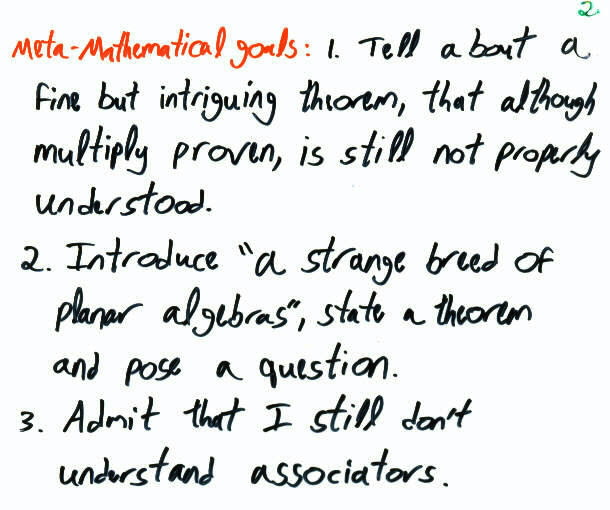 2.
Meta-Mathematical goals: 1. Tell about a
fine but intriguing theorem, that although
multiply proven, is still not properly
understood.
2. Introduce "a strange breed of
planar algebras", state a theorem
and pose a question.
3. Admit that I still don't
understand associators.